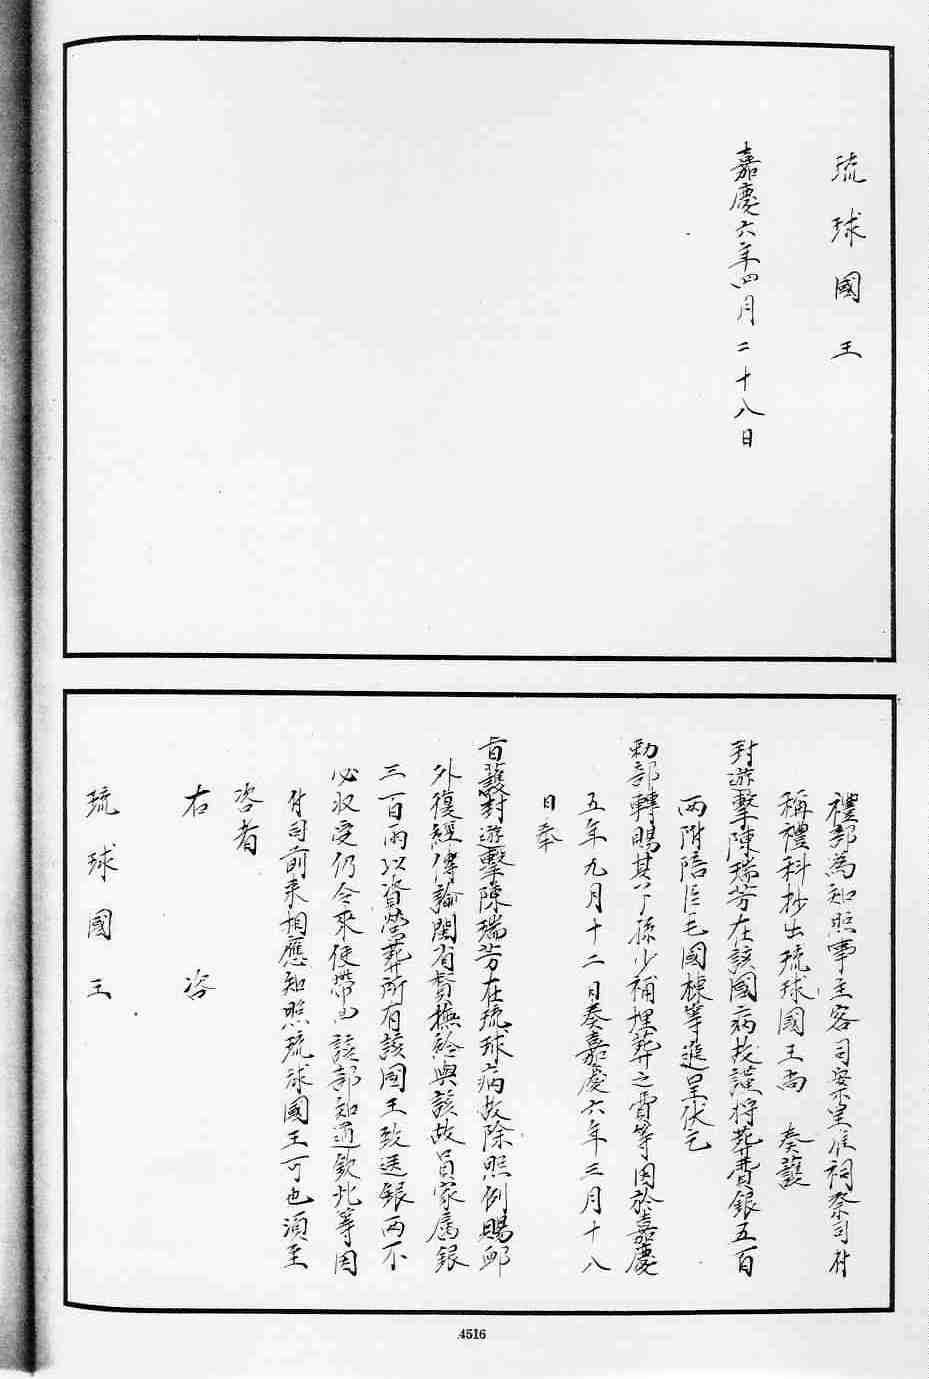 琉球國王
嘉慶六年四月二十八日
禮部為知照事主客司案呈准祠祭司付
稱禮科抄出琉球國王尚 奏護
封遊擊陳瑞芳在該國病故謹將葬費銀五百
兩附陪臣毛國棟等進呈伏乞
勅部轉賜其子孫少補埋葬之費等因於嘉慶
五年九月十二日奏嘉慶六年三月十八
日奉
旨護封遊擊陳瑞芳在琉球病故除照例賜卹
外復經傳諭閩省督撫給與該故員家屬銀
三百兩以資營葬所有該國王致送銀兩不
必收受仍令來使帶回該部知道欽此等因
付司前來相應知照琉球國王可也須至
咨者
右咨
琉球國王
4516